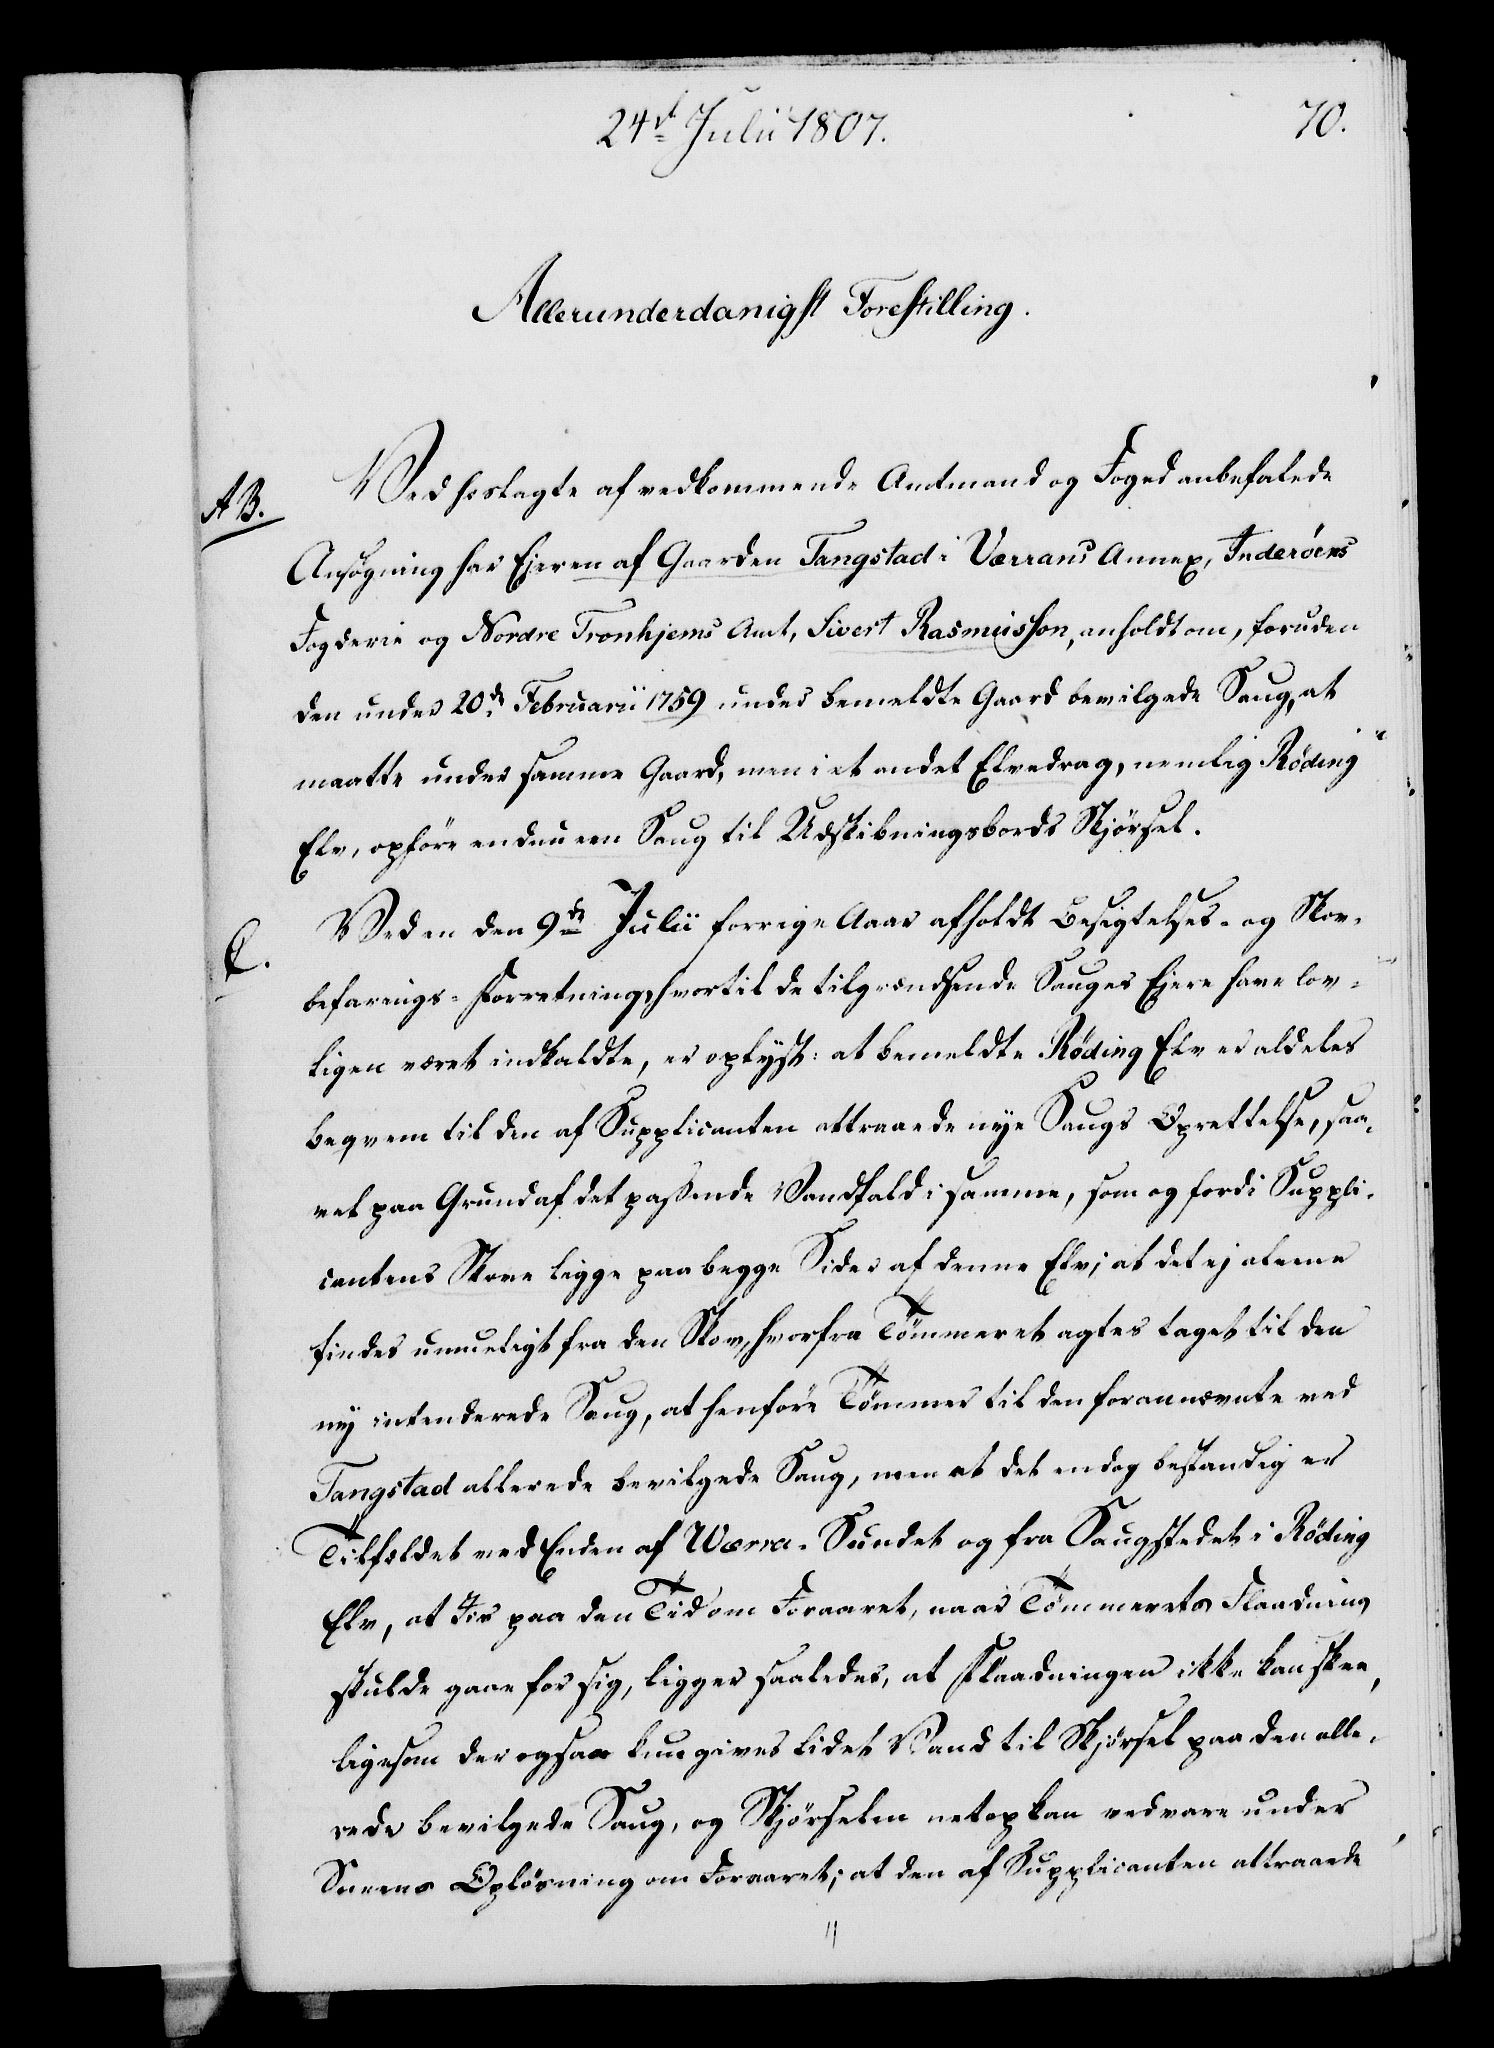 24d Julii 1807.
70.
Allerunderdanigst Forestilling.
AB.
Ved hoslagte af vedkommende Amtmand og Foged anbefalede
Ansøgning har Ejeren af Gaarden Tangstad i Værrans Annex, Inderöens
Fogderie og Nordre Tronhjems Amt, Sivert Rasmusson, anholdt om, foruden
den under 20de Februarii 1759 under bemeldte Gaard bevilgede Saug, at
maatte under samme Gaard, men i et andet Elvedrag, nemlig Røding
Elv, opföre endnu een Saug til Udskibningsbords Skjörsel.
C.
Ved en den 9de Julii forrige Aaar afholdt Besigtelses- og Skov-
befarings-Forretning, hvortil de tilgrændsende Sauges Ejere have lov-
ligen været indkaldte, er oplyst: at bemeldte Røding Elv er aldeles
beqvem til den af Supplicanten attraaede nye Saugs Oprettelse, saa-
vel paa Grund af det passende Vandfald i samme, som og fordi Suppli-
cantens Skove ligge paa begge Sider af denne Elv; at det ej alene
findes umueligt fra den Skov, hvorfra Tömmeret agtes taget til den
ny intenderede Saug, at henföre Tömmer til den forannævnte ved
Tangstad allerede bevilgede Saug, men at det endog bestandig er
Tilfældet ved Enden af Wærra-Sundet og fra Saugstedet i Röding
Elv, at Iis paa den Tid om Foraaret, naar Tömmerets Flaadning
skulde gaae for sig, ligger saaledes, at Flaadningen ikke kan skee,
ligesom der ogsaa kun gives lidet Vand til Skjörsel paa den alle-
rede bevilgede Saug, og Skjörselen netop kan vedvare under
Sneens Oplösning om Foraaret; at den af Supplicanten attraaede